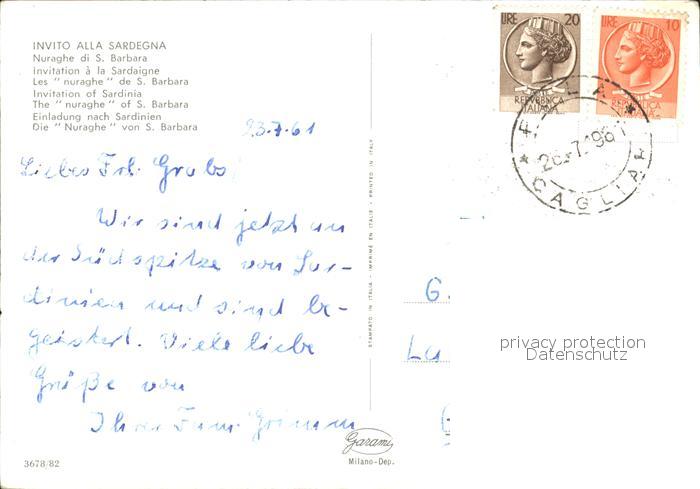 INVITO ALLA SARDEGNA
Nuraghe di S. Barbara
Invitation à la Sardaigne
Les "nuraghe" de S. Barbara
Invitation of Sardinia
The "nuraghe" of S. Barbara
Einladung nach Sardinien
Die "Nuraghe" von S. Barbara
23.7.61
Liebes Frl. Grabs
Wir sind jetzt an
der Südspitze von Sar-
dinien und sind be-
geistert. Viele liebe
Grüße von
Ihrer Fam. Grimm
3678/82
STAMPATO IN ITALIA - IMPRIMÉ EN ITALIE - PRINTED IN ITALY
Garami
Milano-Dep.
LIRE 20
REPVBBLICA
ITALIANA
LIRE 10
REPVBBLICA
ITALIANA
CAGLIARI
G.
La
privacy protection
Datenschutz